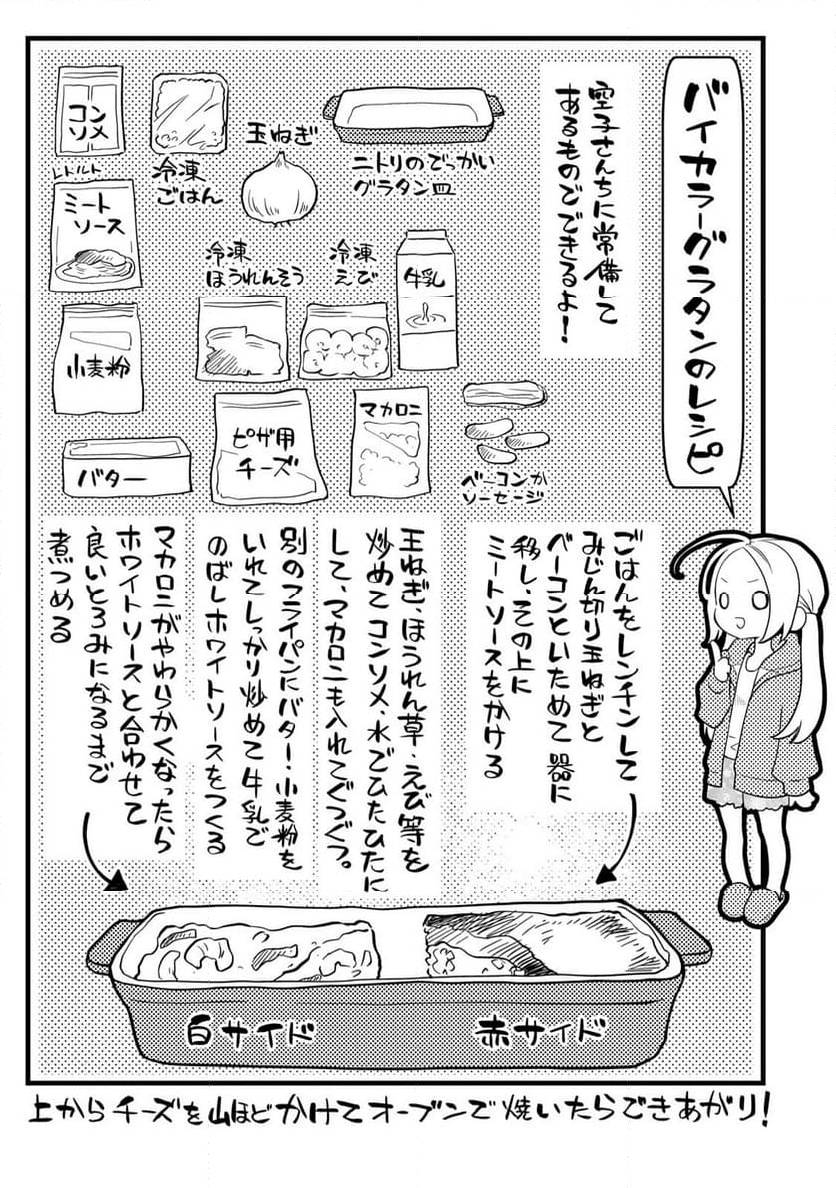 バイカラーグラタンのレシピ
空子さんちに常備して
あるものでできるよ!
ニトリのでっかい
グラタン皿
玉ねぎ
冷凍
ごはん
コン
ソメ
レトルト
ミート
ソース
冷凍
ほうれんそう
冷凍
えび
牛乳
小麦粉
バター
ピザ用
チーズ
マカロニ
ベーコンか
ソーセージ
ごはんをレンチンして
みじん切り玉ねぎと
ベーコンといためて器に
移し、その上に
ミートソースをかける
玉ねぎ、ほうれん草・えび等を
炒めてコンソメ、水でひたひたに
して、マカロニも入れてぐつぐつ。
別のフライパンにバター・小麦粉を
いれてしっかり炒めて牛乳で
のばしホワイトソースをつくる
マカロニがやわらかくなったら
ホワイトソースと合わせて
良いとろみになるまで
煮つめる
白サイド
赤サイド
上からチーズを山ほどかけてオーブンで焼いたらできあがり!